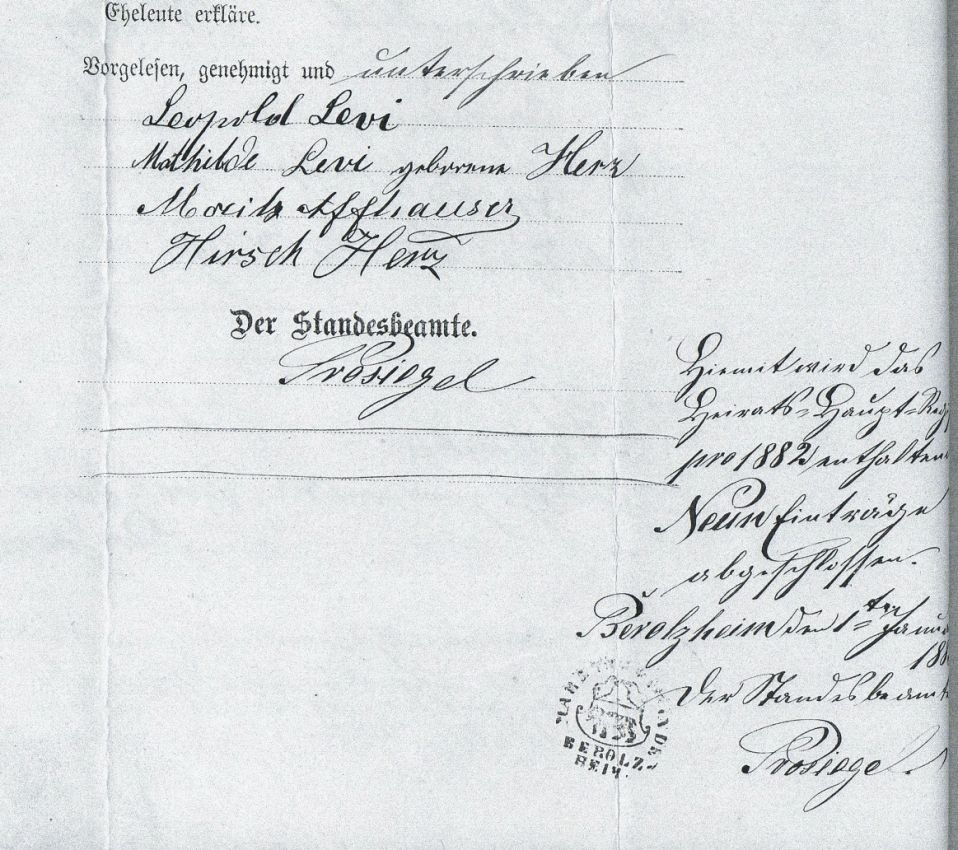 Eheleute erkläre.
Vorgelesen, genehmigt und unterschrieben
Leopold Levi
Mathilde Levi geborene Herz
Moritz
Hirsch Herz
Der Standesbeamte.
Prosiegel
Hiemit wird das
Heirats-Haupt-Reg
pro 1882 enthaltend
Neun Einträge
abgeschlossen.
Berolzheim den 1ten Janu
188
Der Standesbeamt
Prosiegel.
BEROLZ-
HEIM.